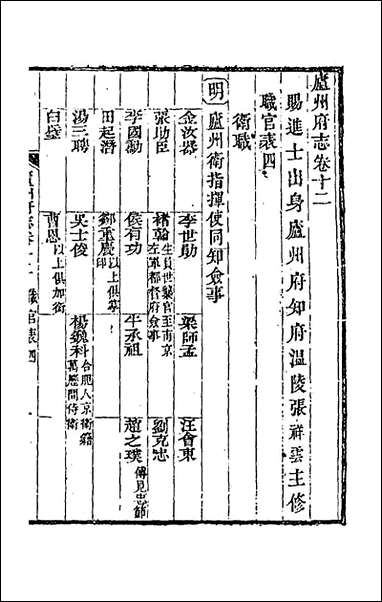 廬州府志卷十二
賜進士出身廬州府知府溫陵張祥雲主修
職官表四
衛職
明 廬州衛指揮使同知僉事
金汝器 李世勛 梁師孟 汪會東
張助臣 林翰生員世襲官至南京左軍都督府僉事 劉克忠
李國勳 侯有功 牛承祖 趙之璞傳見忠節
田起潛 鄭重慶以上俱掌印
湯三聘 吳士俊 楊魏科合肥人京衛籍萬歷間侍衛
白璧 曹恩以上俱加銜
廬州府志卷十二 職官表四 一